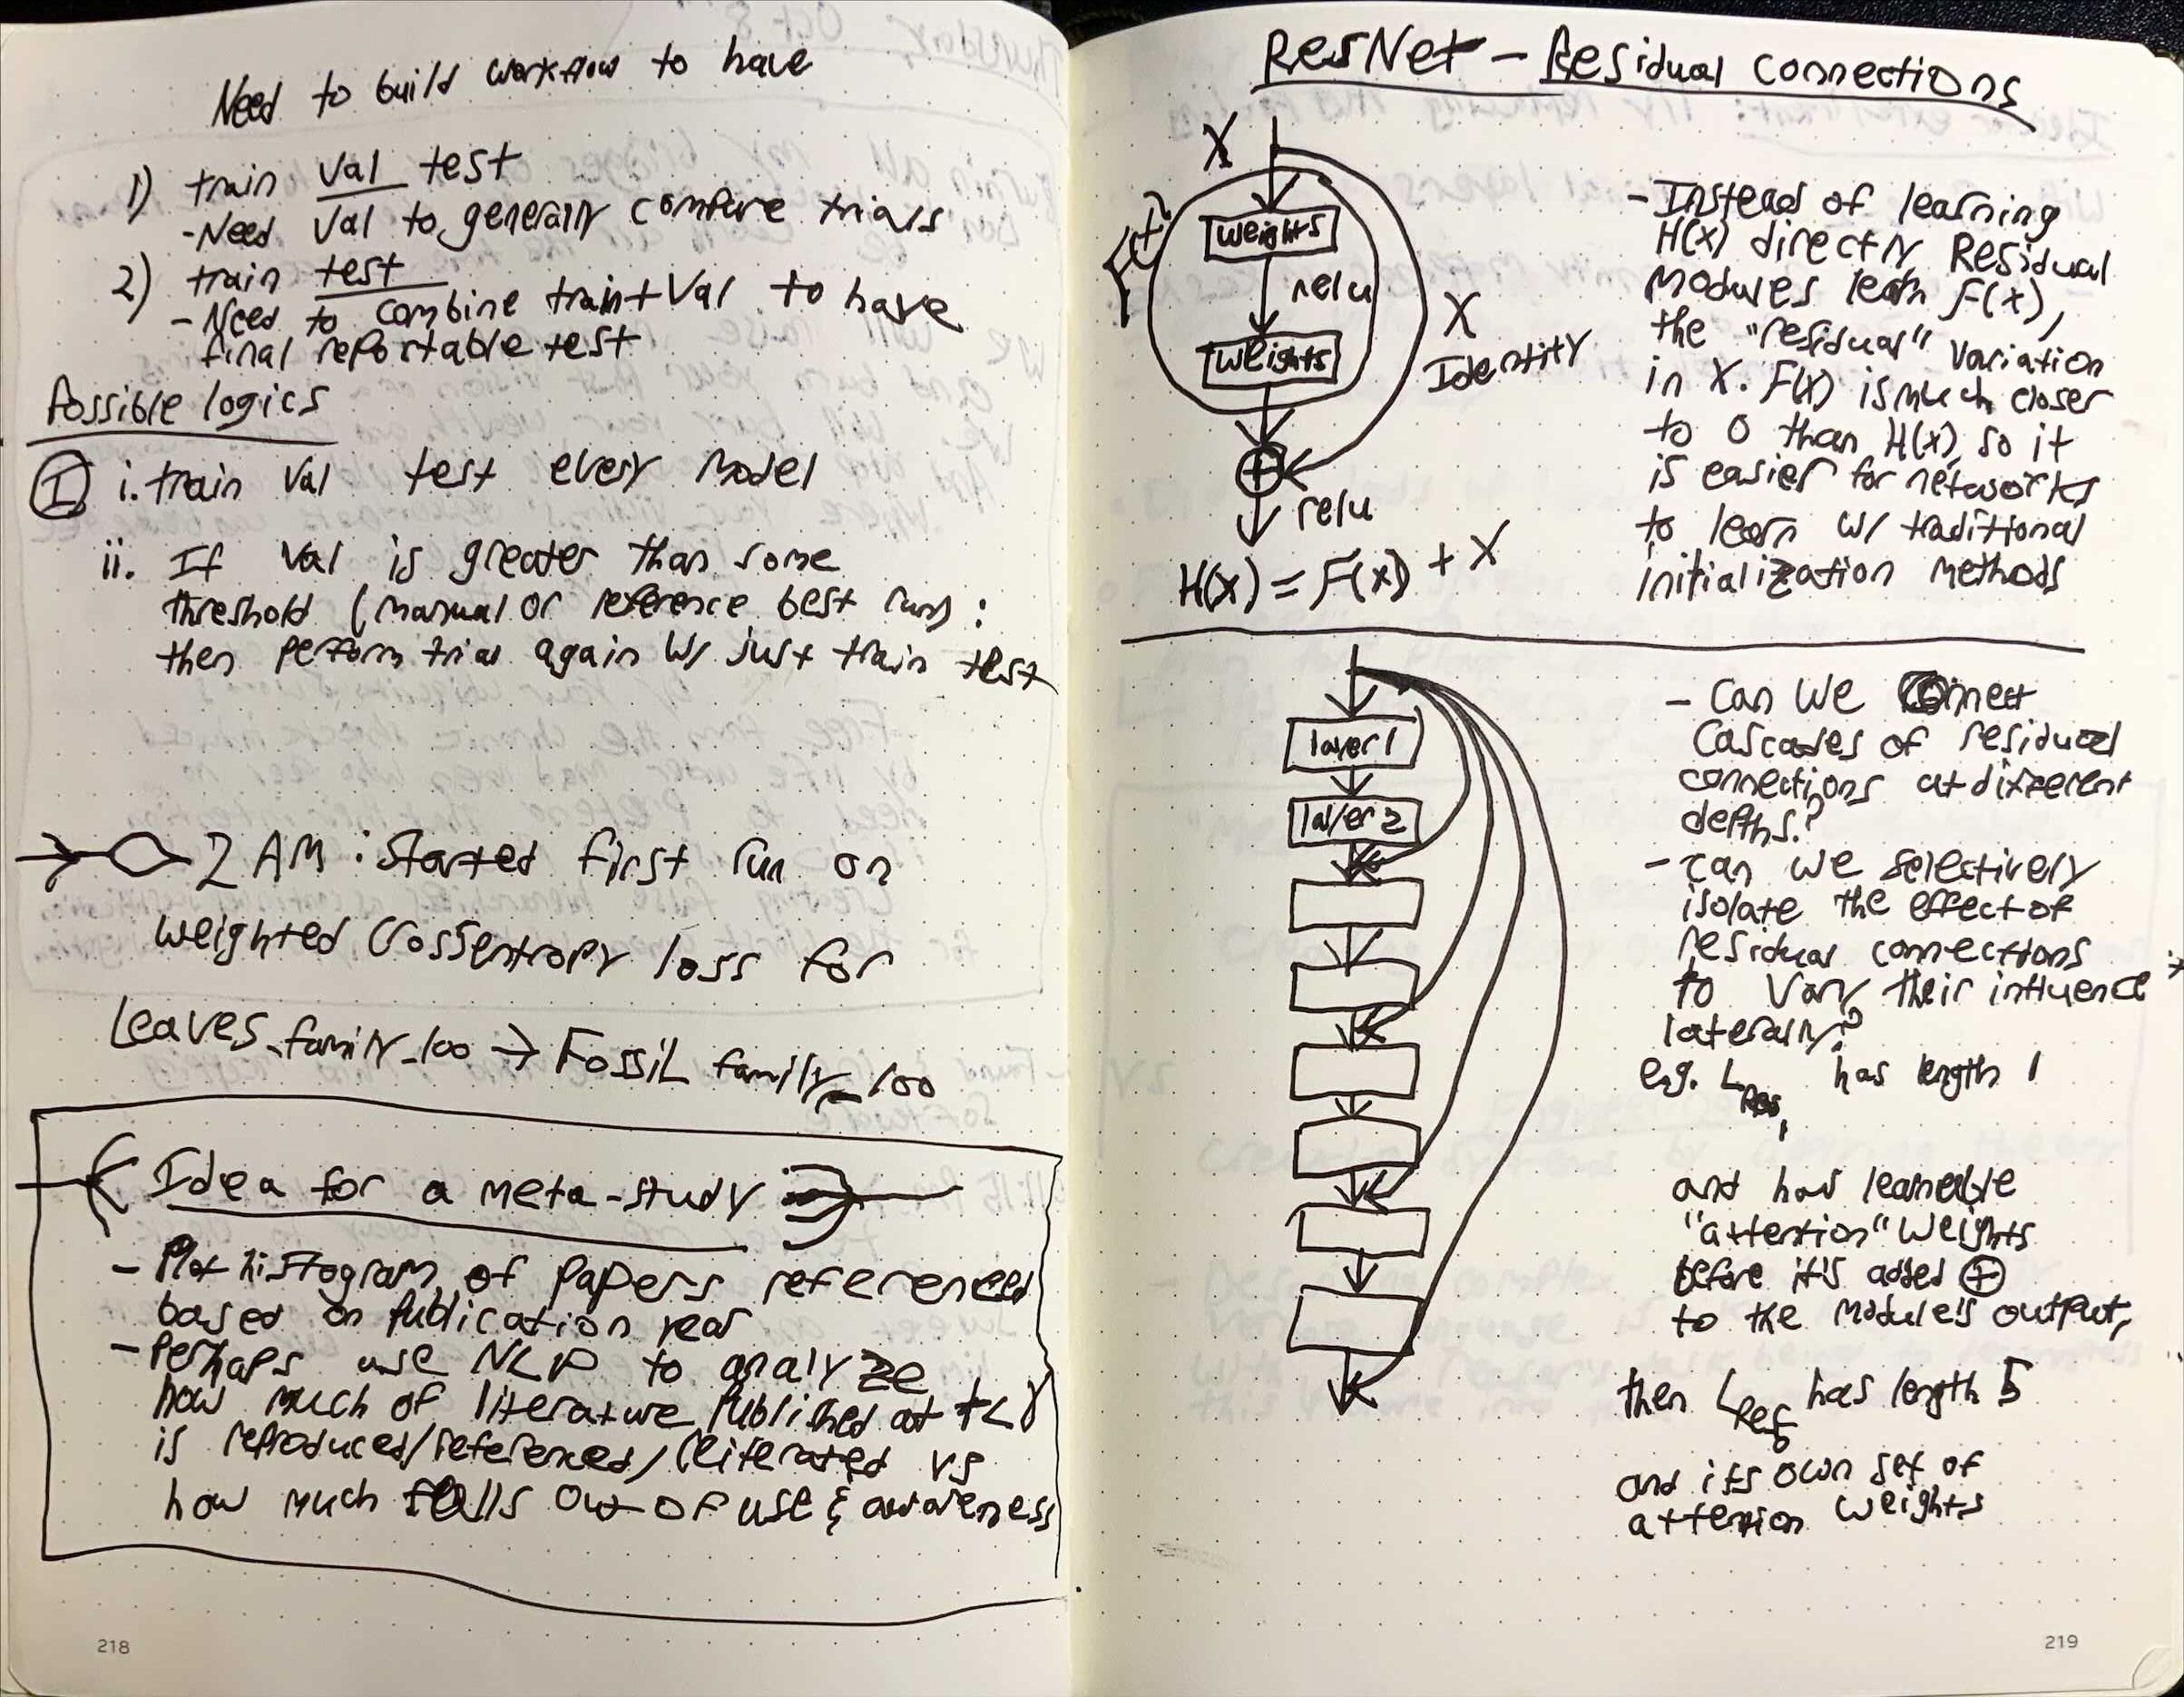 Need to build workflow to have
1) train val test
-Need val to generally compare trials
2) train test
- Need to combine train+val to have
final reportable test
Possible logics
I i. train val test every model
ii. If val is greater than some
threshold (manual or reference best run):
then perform trial again w/ just train test
2 AM: Started first run on
weighted crossentropy loss for
Leaves_family_100 → Fossil family_100
Idea for a meta-study
- Plot histogram of papers referenced
based on publication year
- Perhaps use NLP to analyze
how much of literature published at t<
is reproduced/referenced/reiterated vs
how much falls out of use & awareness
218
ResNet - Residual connections
X
F(x)
weights
relu
X
Identity
weights
+
relu
H(x) = F(x) + X
- Instead of learning
H(x) directly Residual
modules learn F(x),
the "residual" variation
in X. F(x) is much closer
to 0 than H(x), so it
is easier for networks
to learn w/ traditional
initialization methods
layer 1
layer 2
- Can we connect
cascades of residual
connections at different
depths?
- can we selectively
isolate the effect of
residual connections
to vary their influence
laterally?
e.g. L Res 1 has length 1
and has learnable
"attention" weights
before it's added ⊕
to the module's output,
then L Res has length 5
and its own set of
attention weights
219